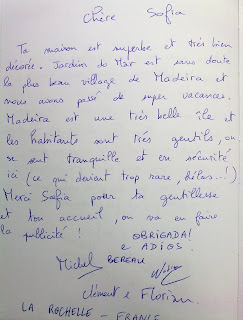 Chère Sofia
Ta maison est superbe et très bien
décorée. Jardim do Mar est sans doute
le plus beau village de Madeira et
nous avons passé de super vacances.
Madeira est une très belle île et
les habitants sont très gentils, on
se sent tranquille et en sécurité
ici (ce qui devient trop rare, hélas...!)
Merci Sofia pour ta gentillesse
et ton accueil, on va en faire
la publicité !
OBRIGADA!
e ADIOS!
Michel BEREAU
Clément e Florian.
LA ROCHELLE - FRANCE